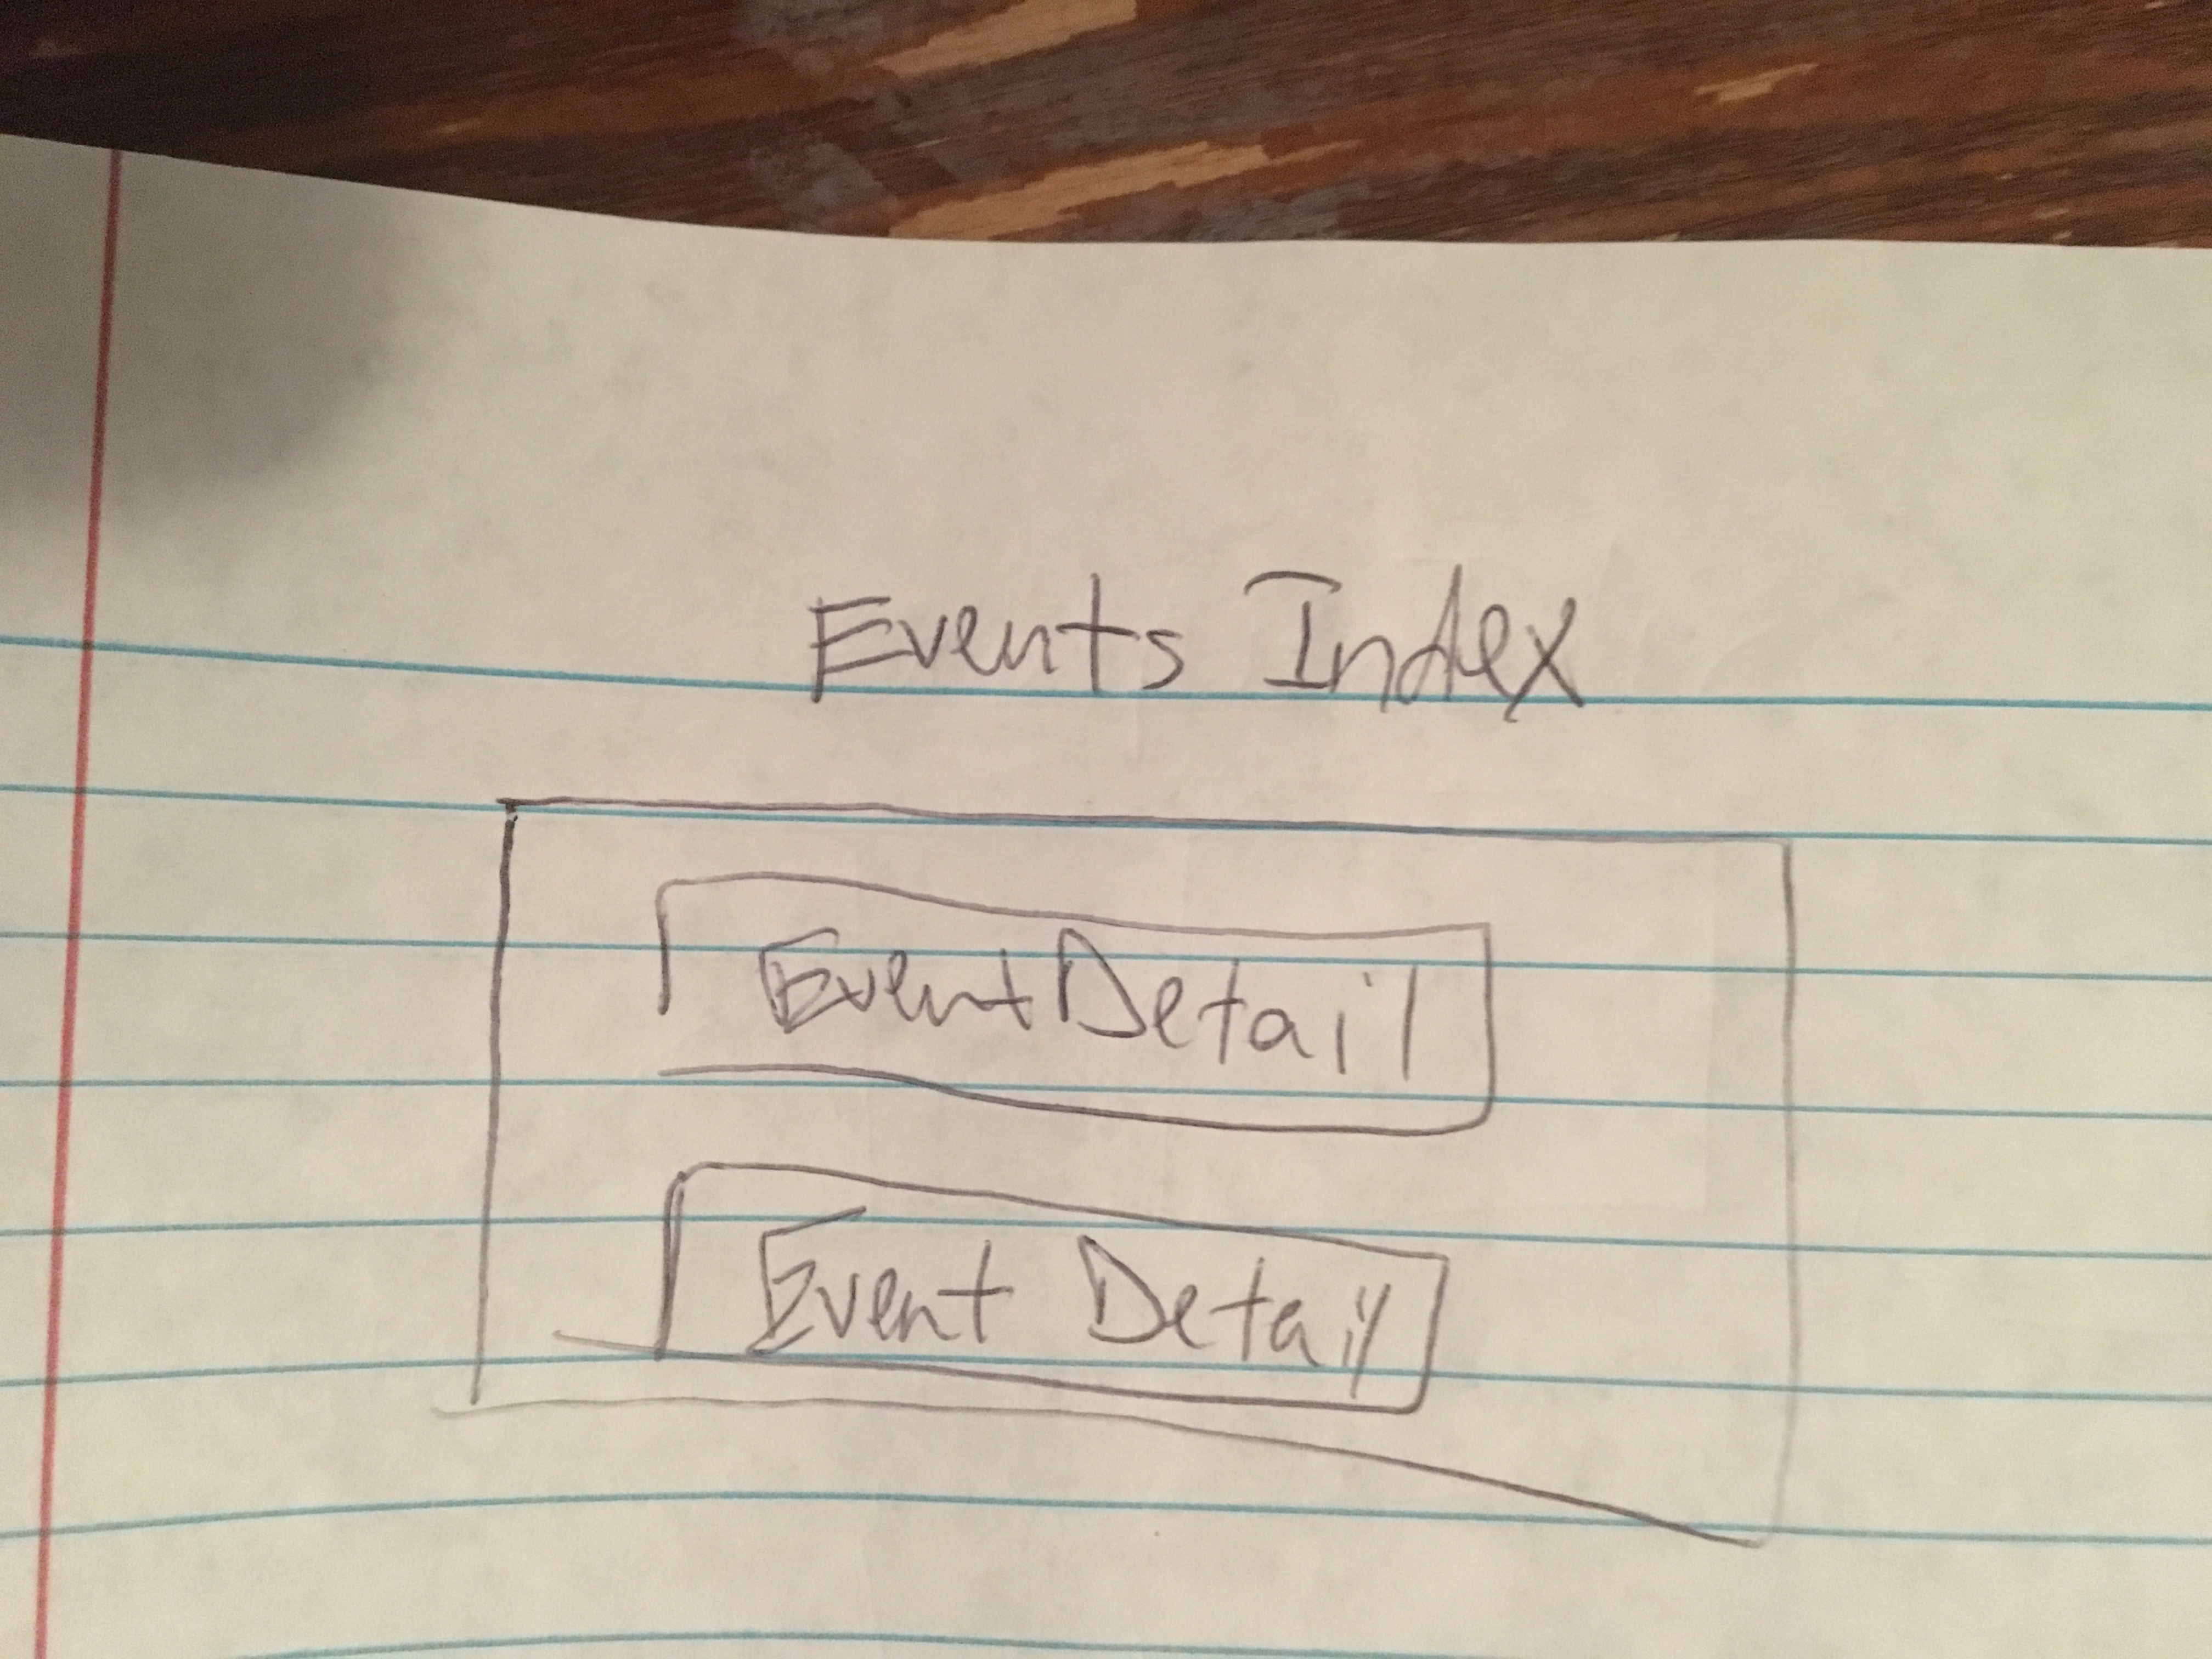 Events Index
Event Detail
Event Detail